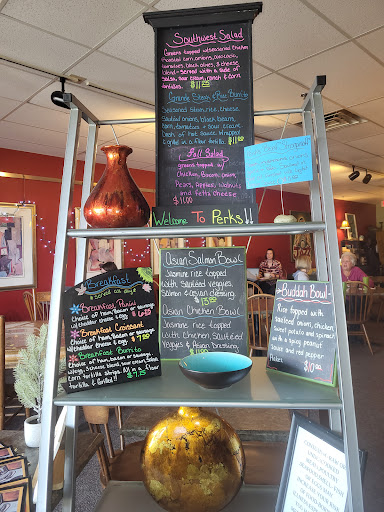 Southwest Salad
Greens topped w/seasoned Chicken
Roasted corn, onions, avocado,
tomatoes, black olives, 3 cheese
blend - Served with a side of
Salsa, sour cream, ranch & corn
tortillas. $11.25
Grande Steak & Rice Burrito
Seasoned steak, rice, cheese
Sautéed onions, black beans,
Corn, tomatoes & sour cream
Dash of hot sauce. Wrapped
& grilled in a flour tortilla. $11.00
Fall Salad
greens topped w/
Chicken, Bacon, onion,
Pears, apples, walnuts
and feta cheese
$11.00
Welcome To Perks!!
Asian Salmon Bowl
Jasmine rice topped
with Sautéed veggies,
Salmon & asian dressing
Asian Chicken Bowl
Jasmine rice topped
with Chicken, Sautéed
Veggies & Asian Dressing
$11.00
Breakfast
* Served all day
Breakfast Panini
Choice of ham, Bacon or sausage
w/cheddar cheese & egg
Breakfast Croissant
Choice of ham, Bacon or sausage
w/cheddar cheese & egg $7.00
Breakfast Burrito
Choice of ham, bacon or sausage,
w/egg, 3 cheese blend, sour cream, Salsa
Corn tortilla strips. All in a flour
tortilla & Grilled!! $7.25
Buddah Bowl
Rice topped with
sautéed onion, chicken
Sweet potato and spinach
with a spicy peanut
sauce and red pepper
flakes. $10.00